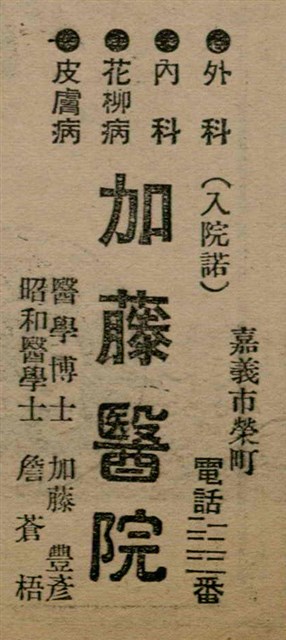 外科
內科
花柳病
皮膚病
(入院諾)
加藤醫院
嘉義市榮町
電話二二二番
醫學博士 加藤豐彥
昭和醫學士 詹蒼梧